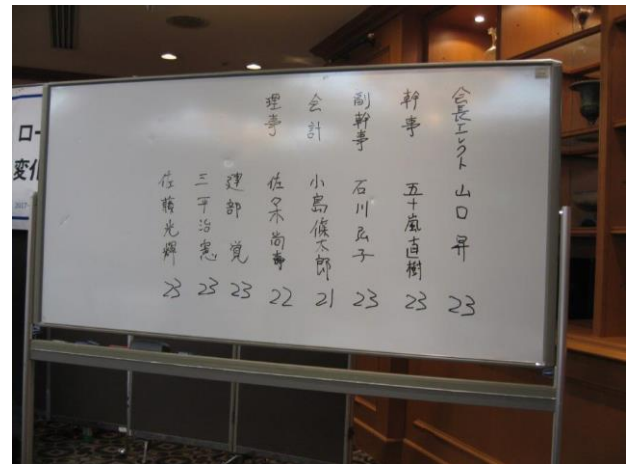 会長エレクト 山口 昇 23
幹事 五十嵐直樹 23
副幹事 石川弘子 23
会計 小島俊太郎 21
理事 佐々木尚 22
建部 覚 23
三平治憲 23
佐藤光輝 23
ロー
変化
2017-